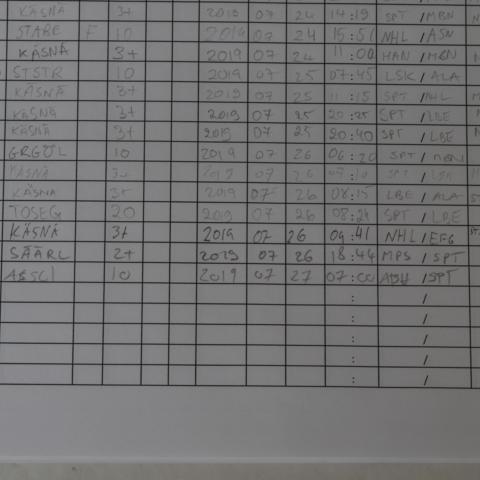 KÄSNÄ 3+ 2019 07 24 14:19 SPT / MBN
STARE F 10 2019 07 24 15:51 NHL / ASN
KÄSNÄ 3+ 2019 07 24 11:00 HAN / MBN
STSTR 10 2019 07 25 07:45 LSK / ALA
KÄSNÄ 3+ 2019 07 25 11:15 SPT / NHL
KÄSNÄ 3+ 2019 07 25 20:25 SPT / LBE
KÄSNÄ 3+ 2019 07 25 20:40 SPT / LBE
GRGÖL 10 2019 07 26 06:20 SPT / MBN
KÄSNÄ 3+ 2019 07 26 07:10 SPT /
KÄSNÄ 3+ 2019 07 26 08:15 LBE / ALA
TOSEG 20 2019 07 26 08:24 SPT / LBE
KÄSNÄ 3+ 2019 07 26 09:41 NHL / EFG
SÄÄRL 2+ 2019 07 26 18:44 MPS / SPT
ABSCI 10 2019 07 27 07:00 / SPT
: /
: /
: /
: /
: /